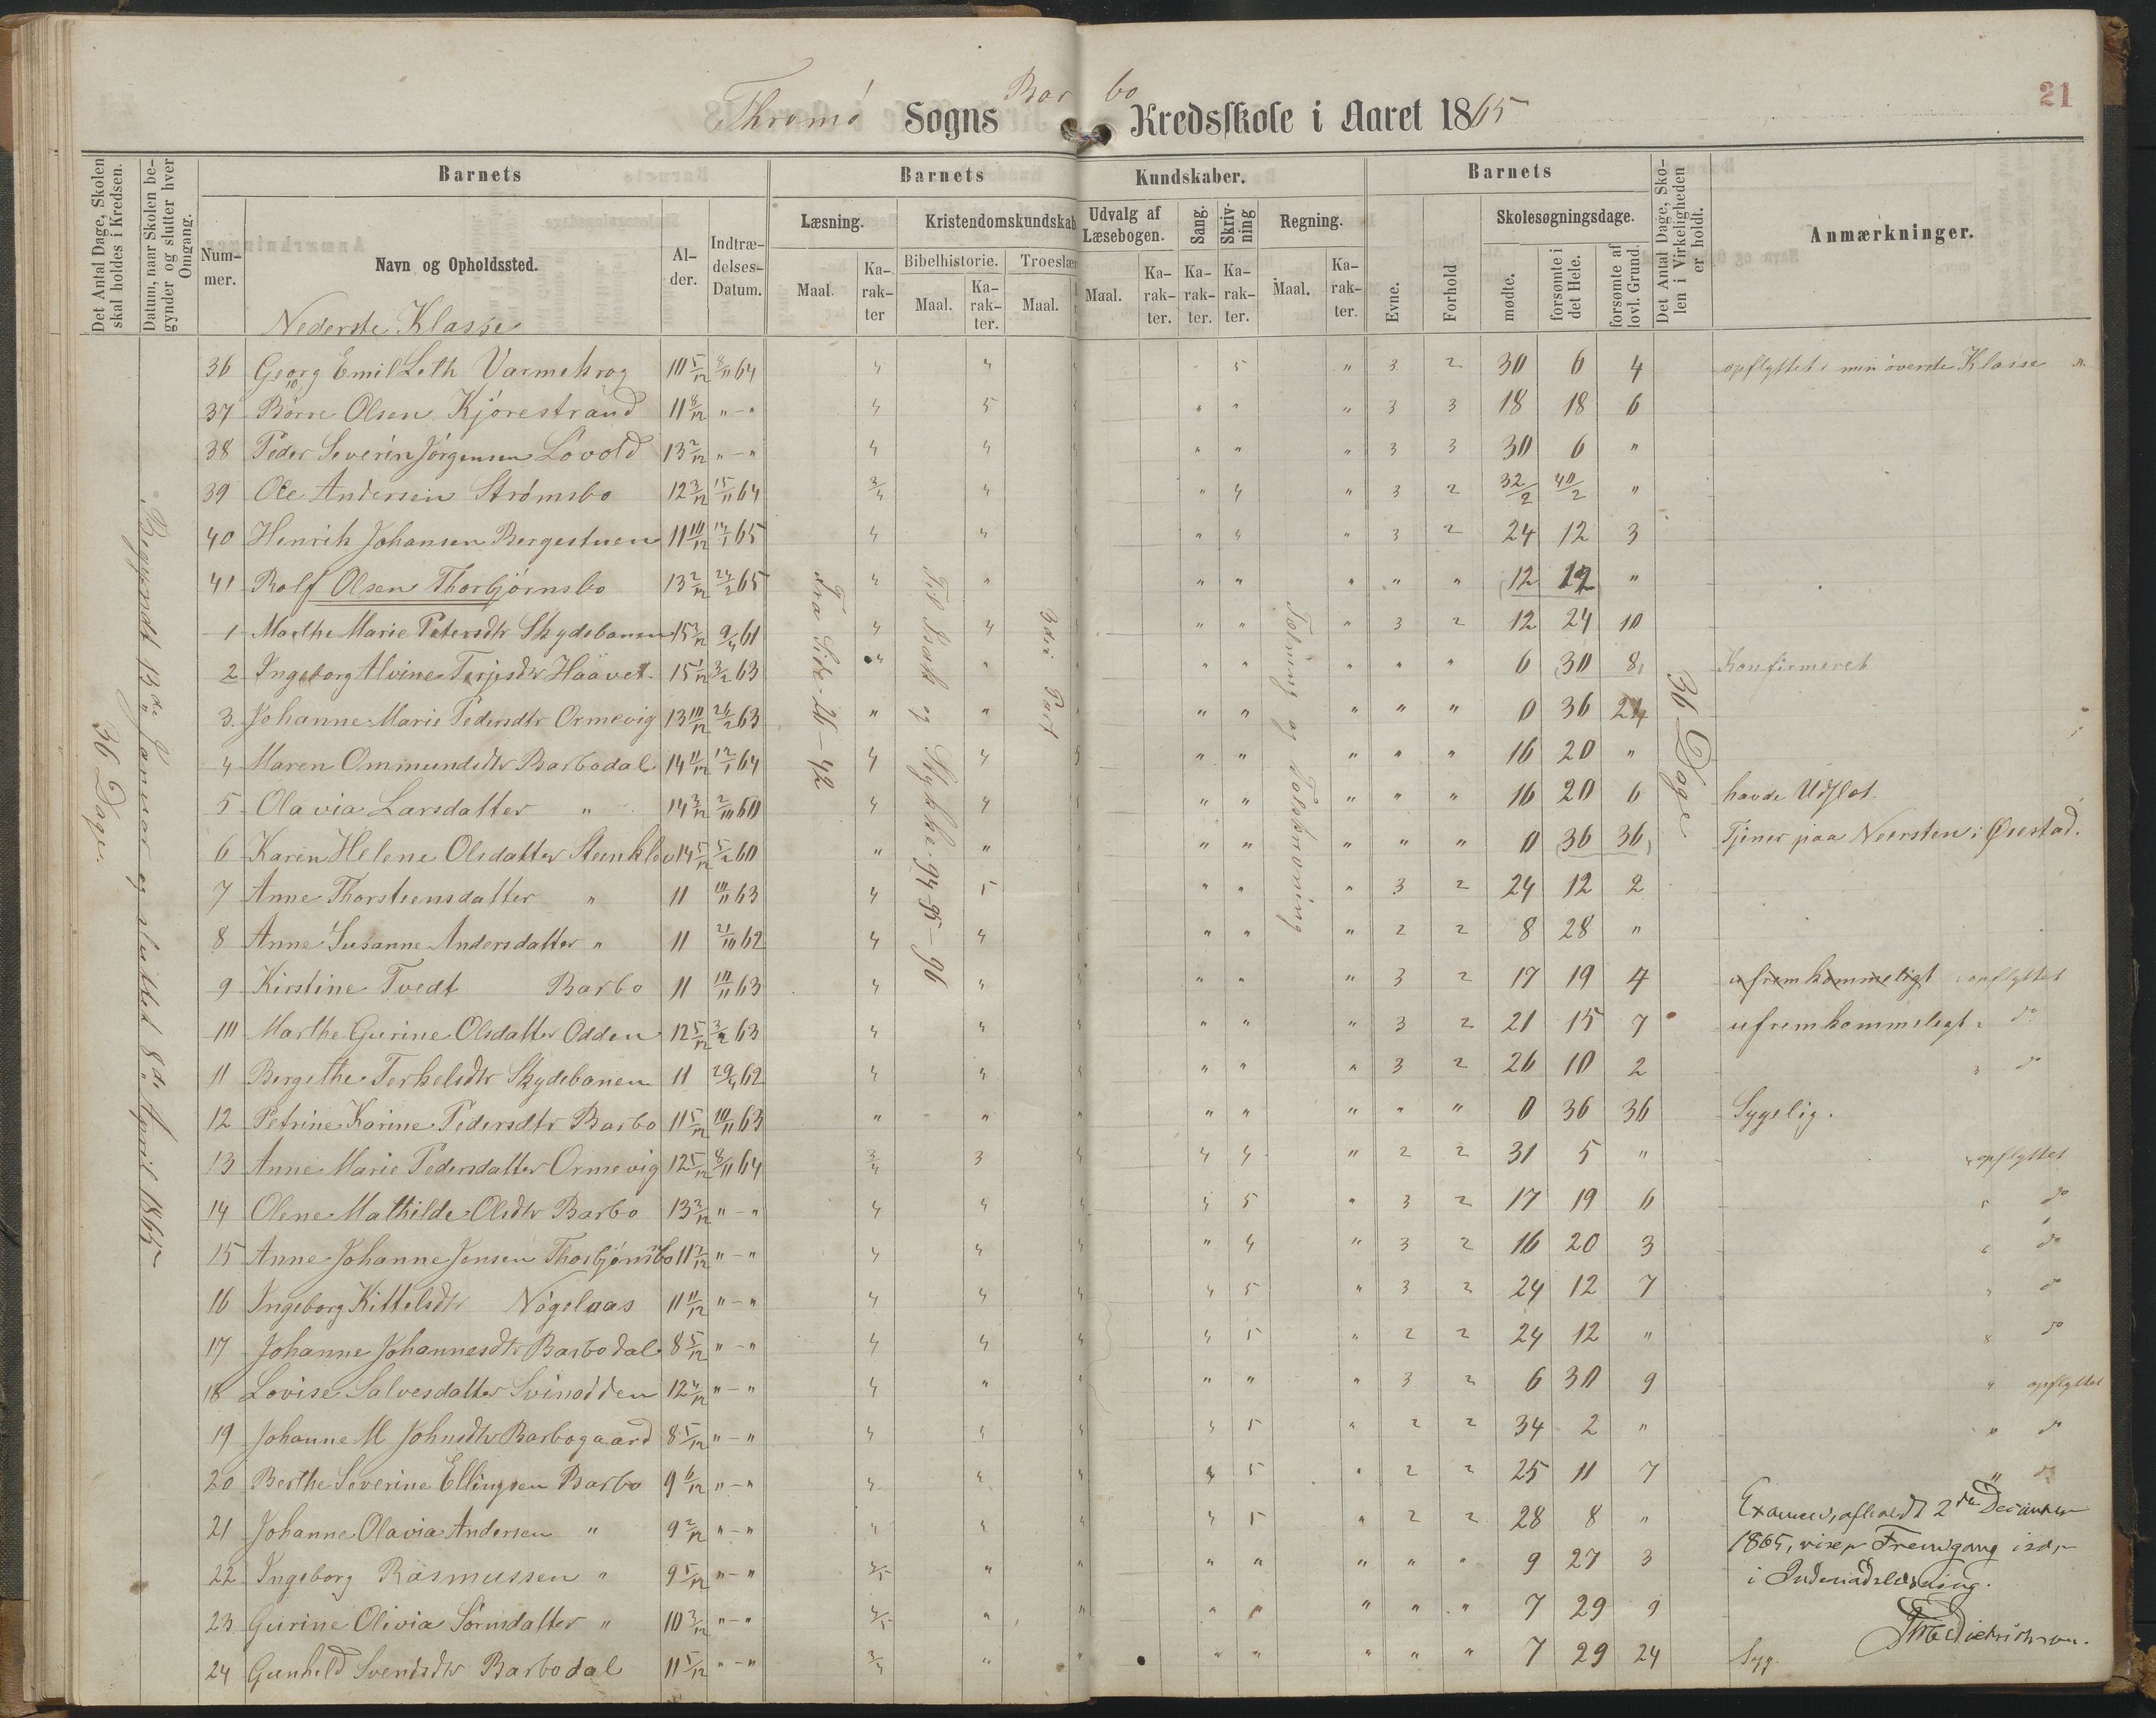 21
Thromö Sogns Barbo Kredsskole i Aaret 1865
Det Antal Dage, Skolen skal holdes i Kredsen.
Datum, naar Skolen begynder og slutter hver Omgang.
Barnets
Nummer.
Navn og Opholdssted.
Alder.
Indtrædelses-Datum.
Barnets Kundskaber.
Læsning.
Maal.
Karakter
Kristendomskundskab
Bibelhistorie.
Maal.
Karakter.
Troeslær
Maal.
Udvalg af Læsebogen.
Maal.
Karakter.
Sang.
Karakter.
Skrivning
Karakter.
Regning.
Maal.
Karakter.
Barnets
Evne.
Forhold
Skolesøgningsdage.
mødte.
forsømte i det Hele.
forsømte af lovl. Grund.
Det Antal Dage, Skolen i Virkeligheden er holdt.
Anmærkninger.
Nederste Klasse
36 Dage.
Begyndt 13de Januar og sluttet 8de April 1865
Fra Side 26-42
Til Isak og Stykke 94-95-96
3die Part
Tælning og Talskrivning
36 Dage
36 Georg Emil Leth Varmekrog 10 5/12 8/11 64 4 4 5 " 3 2 30 6 4 opflyttet i min överste Klasse
37 Börre Olsen Kjörestrand 11 8/12 " - " 4 5 " " " 3 3 18 18 6
38 Peder Severin Jörgensen Lövold 13 2/12 " - " 4 4 " " " 3 3 30 6 "
39 Ole Andersen Strömsbo 12 3/12 15/11 64 3/4 4 " 4 " 3 2 32/2 40/2 "
40 Henrik Johansen Bergestuen 11 10/12 12/1 65 4 4 " 4 " 3 2 24 12 3
41 Rolf Olsen Thorbjörnsbo 13 2/12 24/2 65 4 " " " " " " 12 12 "
1 Marthe Marie Petersdtr Skydebanen 15 3/12 9/4 61 4 4 " " " 3 2 12 24 10
2 Ingeborg Alvine Terjesdtr Haavet 15 1/12 3/2 63 4 " " " " " " 6 30 8 Konfirmeret
3 Johanne Marie Pedersdtr Ormevig 13 10/12 26/2 63 " " " " " " " 0 36 24
4 Maren Ommundsdtr Barbodal 14 11/12 12/1 64 4 4 5 " " " " " 16 20 "
5 Olavia Larsdatter " 14 3/12 2/10 60 4 4 " " " " " 16 20 6 havde Udslæt.
6 Karen Helene Olsdatter Steenklev 14 5/12 5/2 60 " " " " " " " 0 36 36 Tjener paa Neersten i Øiestad.
7 Anne Thorsteensdatter " 11 10/11 63 4 5 " " " 3 2 24 12 2
8 Anne Susanne Andersdatter " 11 21/10 62 4 4 " " " 2 2 8 28 "
9 Kirstine Tvedt Barbo 11 10/11 63 4 4 " " " 3 2 17 19 4 ufremkommeligt opflyttet
10 Marthe Gurine Olsdatter Odden 12 5/12 3/2 63 4 4 " " " 3 2 21 15 7 ufremkommeligt do
11 Bergithe Terkelsdtr Skydebanen 11 29/4 62 4 4 " " " 3 2 26 10 2 do
12 Petrine Karine Pedersdtr Barbo 11 5/12 10/11 63 " " " " " " " 0 36 36 Sygelig.
13 Anne Marie Pedersdatter Ormevig 12 5/12 8/11 64 3/4 3 4 4 4 " 2 2 31 5 " opflyttet
14 Olene Mathilde Olsdtr Barbo 13 3/12 " - " 4 4 4 4 5 " 3 2 17 19 6 do
15 Anne Johanne Jensen Thorbjörnsbo 11 3/12 " - " 4 4 4 " 4 " 3 2 16 20 3 do
16 Ingeborg Kittelsdtr Nögelaas 11 11/12 " - " 4 4 4 4 5 " 3 2 24 12 7 do
17 Johanne Johannesdtr Barbodal 8 5/12 " - " 4 4 4 4 5 " 2 2 24 12 " do
18 Lovise Salvesdatter Svinodden 12 4/12 " - " 4 " " " " " 3 2 6 30 9 opflyttet
19 Johanne M Johnsdtr Barbogaard 8 5/12 " - " 4 4 4 4 5 " 2 2 34 2 " do
20 Berthe Severine Ellingsen Barbo 9 6/12 " - " 4 4 4 4 5 " 2 2 25 11 7 do
21 Johanne Olavia Andersen " 9 2/12 " - " 4 4 4 4 5 " 2 2 28 8 "
22 Ingeborg Rasmussen " 9 5/12 " - " 4/5 " " " " " " " 9 27 3
23 Gurine Olivia Sörensdatter " 10 3/12 " - " 4/5 " " " " " " 7 29 9
24 Gunhild Svendsdtr Barbodal 11 5/12 " - " 3/4 " " " " " " " 7 29 24 Syg.
Examen, afholdt 2den December
1865, viser Fremgang især
i Indenadslæsning.